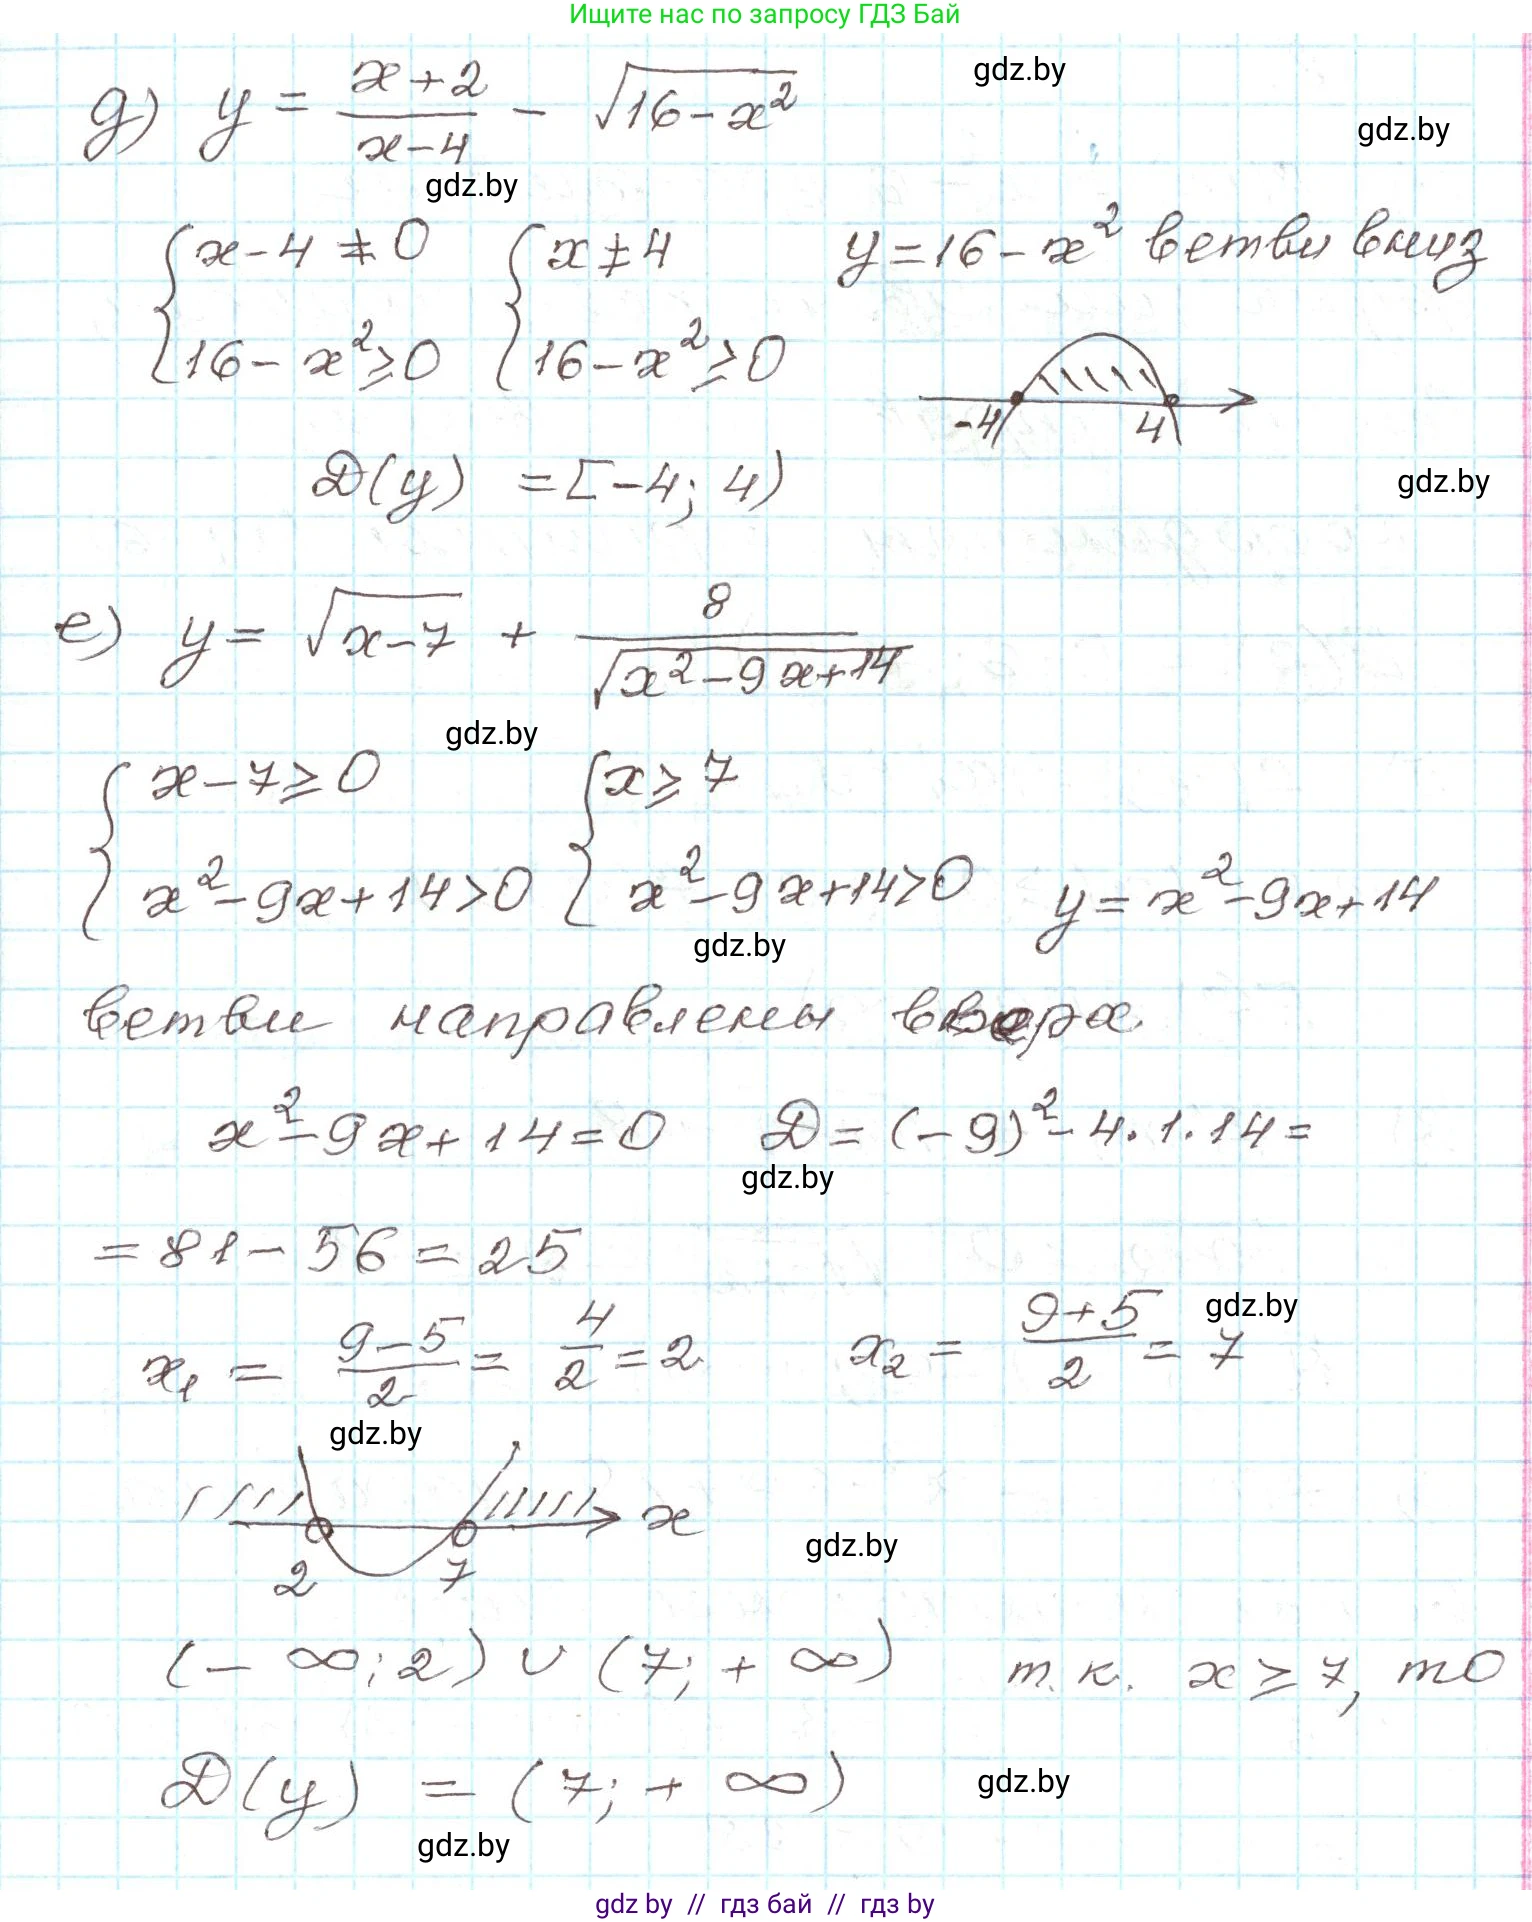 Ищите нас по запросу ГДЗ Бай
д) y = (x+2)/(x-4) - √(16-x²)
gdz.by
gdz.by
gdz.by
{ x-4 ≠ 0 { x ≠ 4 y = 16 - x² ветви вниз
{ 16 - x² ≥ 0 { 16 - x² ≥ 0
-4 4
D(y) = [-4; 4)
gdz.by
е) y = √(x-7) + 8/√(x²-9x+14)
gdz.by
{ x-7 ≥ 0 { x ≥ 7
{ x²-9x+14>0 { x²-9x+14>0 y = x²-9x+14
gdz.by
ветви направлены вверх
x²-9x+14=0 D = (-9)²-4·1·14=
gdz.by
= 81 - 56 = 25
x₁ = (9-5)/2 = 4/2 = 2 x₂ = (9+5)/2 = 7
gdz.by
gdz.by
x
2 7
gdz.by
(-∞; 2) ∪ (7; +∞) т.к. x ≥ 7, то
D(y) = (7; +∞)
gdz.by
gdz.by
gdz by // гдз бай // гдз by